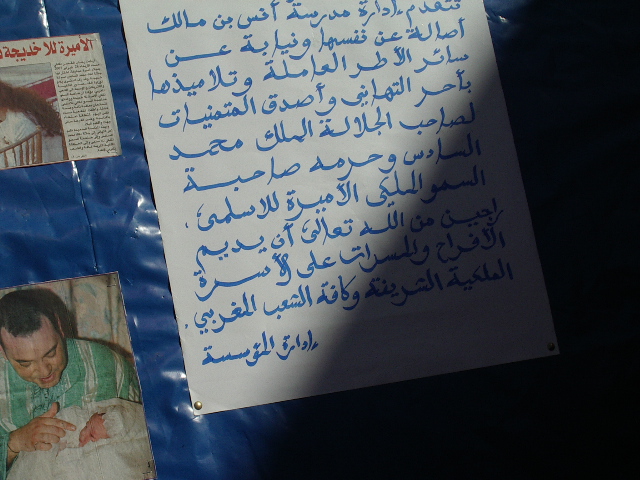 الأميرة للا خديجة
تتقدم إدارة مدرسة أنس بن مالك
أصالة عن نفسها ونيابة عن
سائر الأطر العاملة وتلاميذها
بأحر التهاني وأصدق المتمنيات
لصاحب الجلالة الملك محمد
السادس وحرمه صاحبة
السمو الملكي الأميرة للاسلمى،
راجين من الله تعالى أن يديم
الأفراح والمسرات على الأسرة
الملكية الشريفة وكافة الشعب المغربي.
إدارة المؤسسة